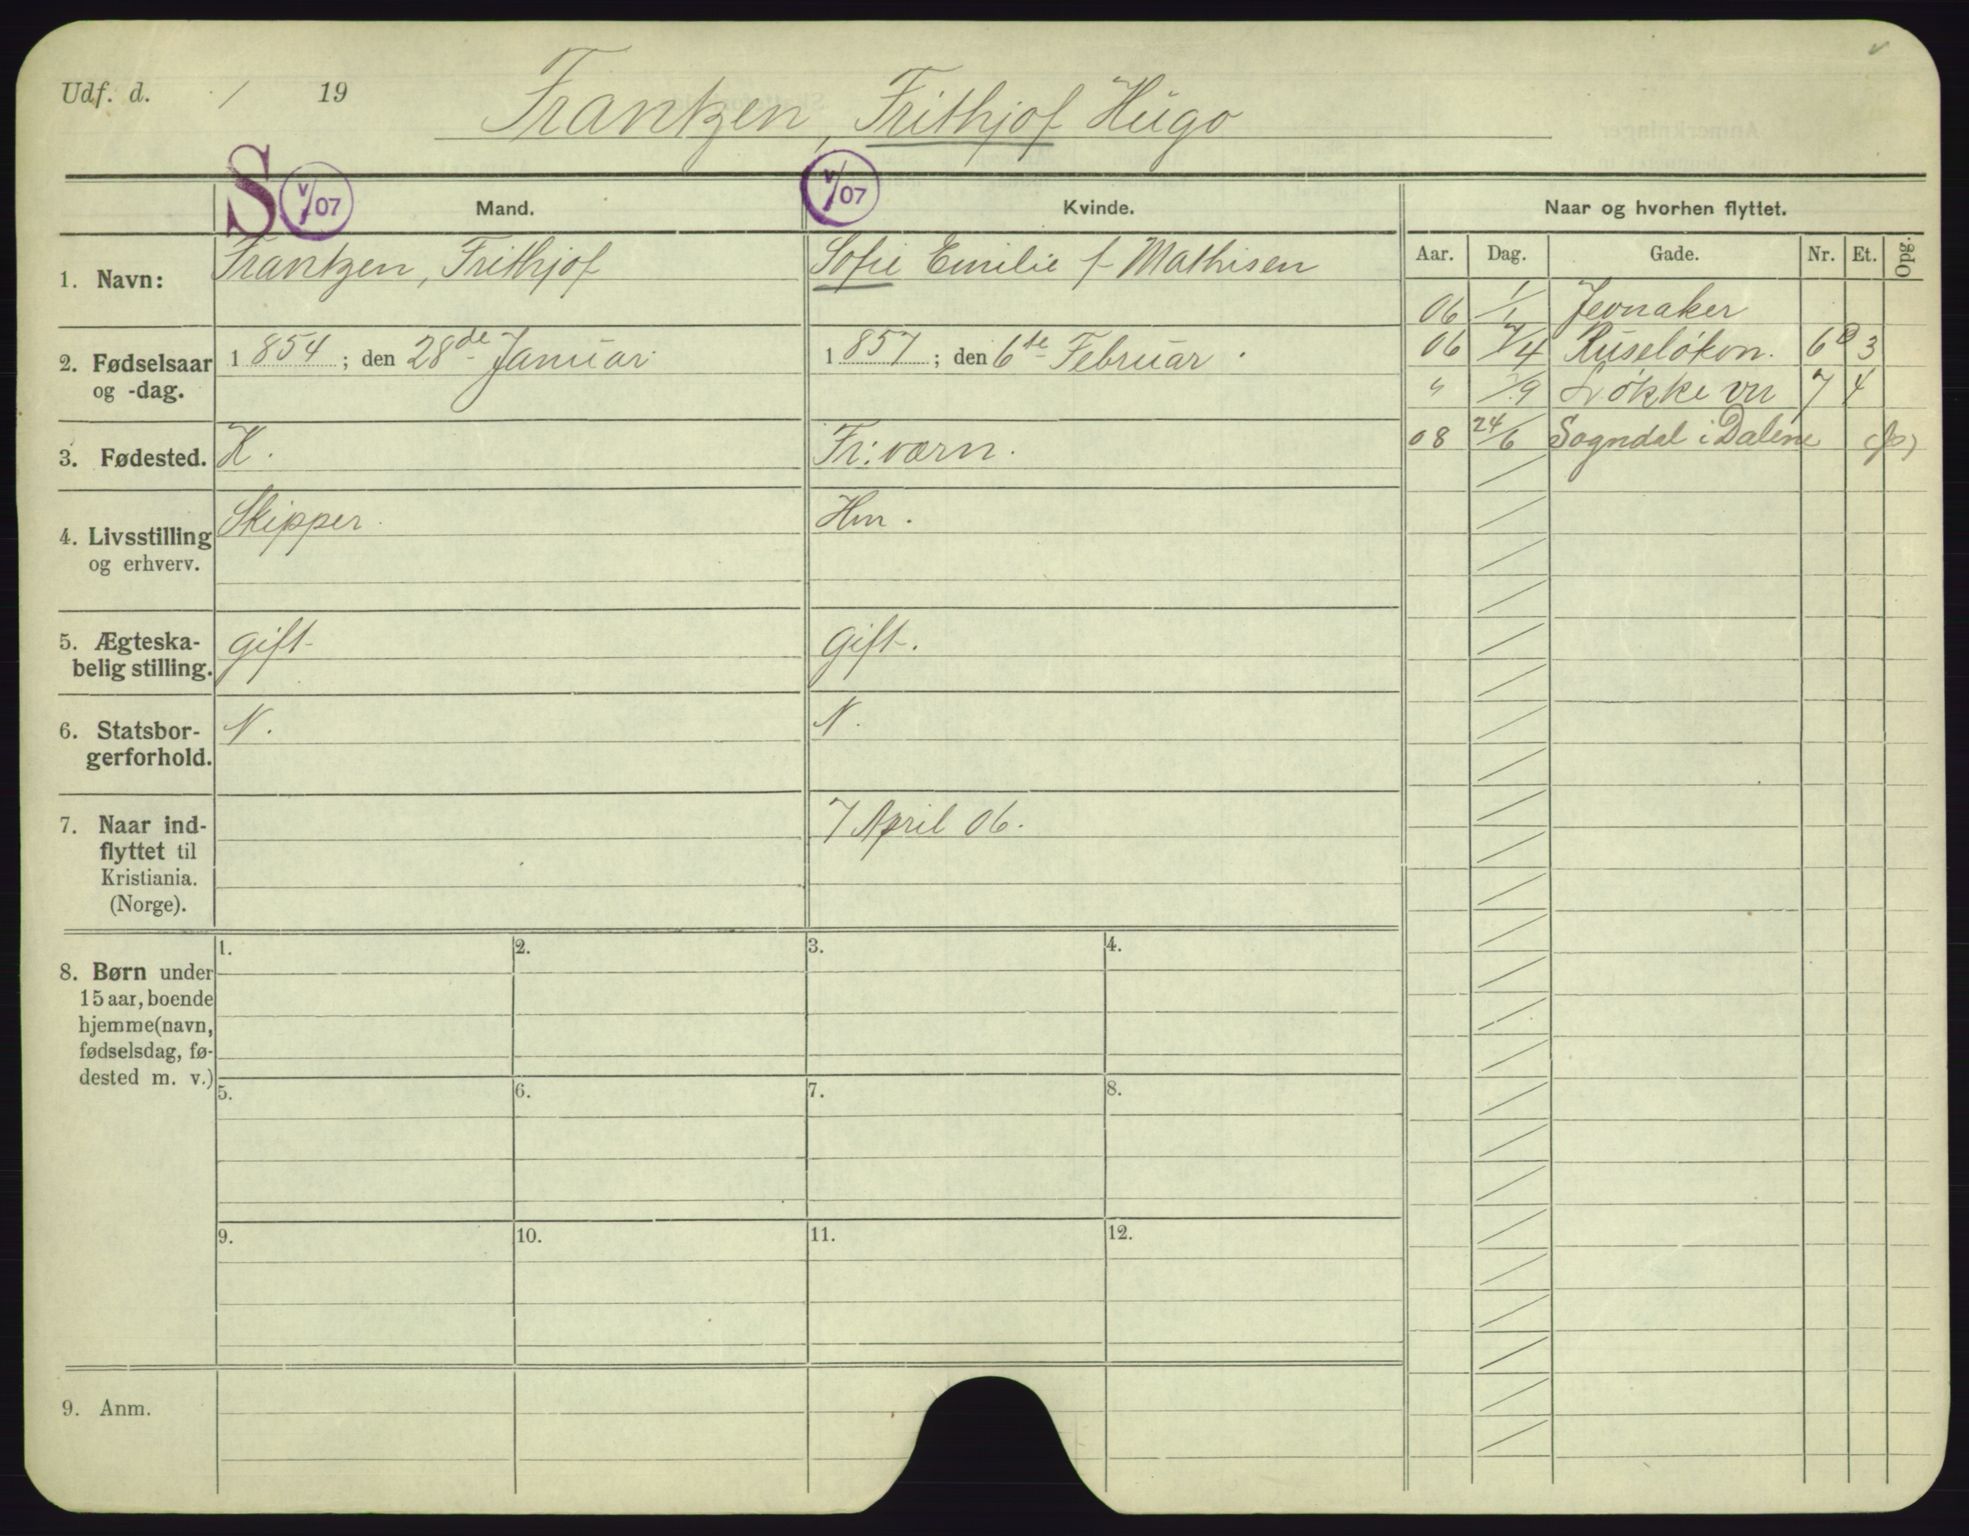 Udf. d. / 19
Frantzen, Frithjof Hugo
S V/07 Mand. V/07 Kvinde. Naar og hvorhen flyttet.
Aar. Dag. Gade. Nr. Et. Opg.
1. Navn: Frantzen, Frithjof Sofie Emilie f. Mathisen
06 1/1 Jevnaker
2. Fødselsaar 1854; den 28de Januar. 1857; den 6te Februar.
og -dag.
06 7/4 Ruseløkvn. 6B 3
" /9 Løkke vn 7 4
08 24/6 Sogndal i Dalene
3. Fødested. K. Fr:værn.
4. Livsstilling Skipper. Hm.
og erhverv.
5. Ægteska- gift gift.
belig stilling.
6. Statsbor- N. N.
gerforhold.
7. Naar ind- 7 April 06.
flyttet til
Kristiania.
(Norge).
1. 2. 3. 4.
8. Børn under
15 aar, boende
hjemme (navn,
fødselsdag, fø-
dested m. v.)
5. 6. 7. 8.
9. 10. 11. 12.
9. Anm.